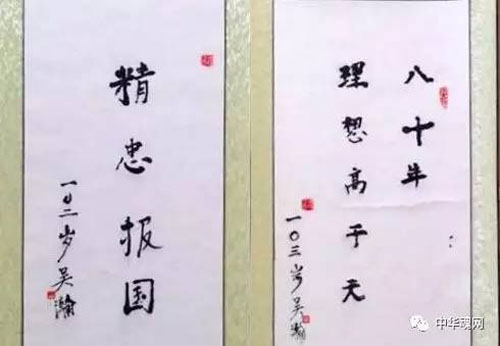 精忠报国
一〇二岁吴瀚
八十年
理想高于天
一〇三岁吴瀚
中华魂网